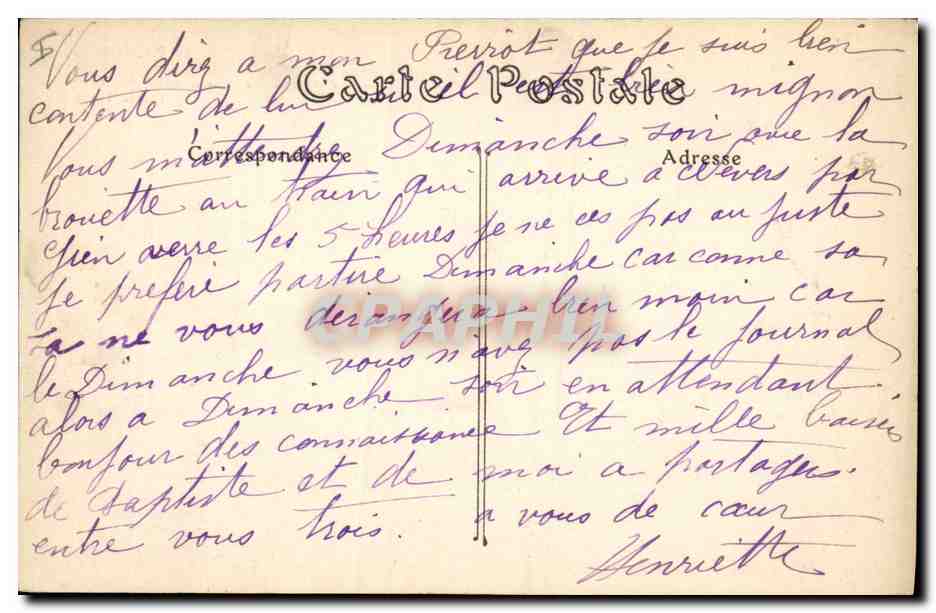 Vous direz a mon Pierrot que je suis bien
Carte Postale
contente de lui il est bien mignon
Correspondance
Adresse
Vous m'attendrez Dimanche soir avec la
brouette au train qui arrive a Nevers par
Gien verre les 5 heures je ne ces pas au juste
je prefere partire Dimanche car comme sa
sa ne vous derangera bien moin car
CPAPHIL
le Dimanche vous n'avez pas le journal
alors a Dimanche soir en attendant
bonjour des connaissance Et mille baisers
de Baptiste et de moi a partager
entre vous trois. a vous de cœur
Henriette